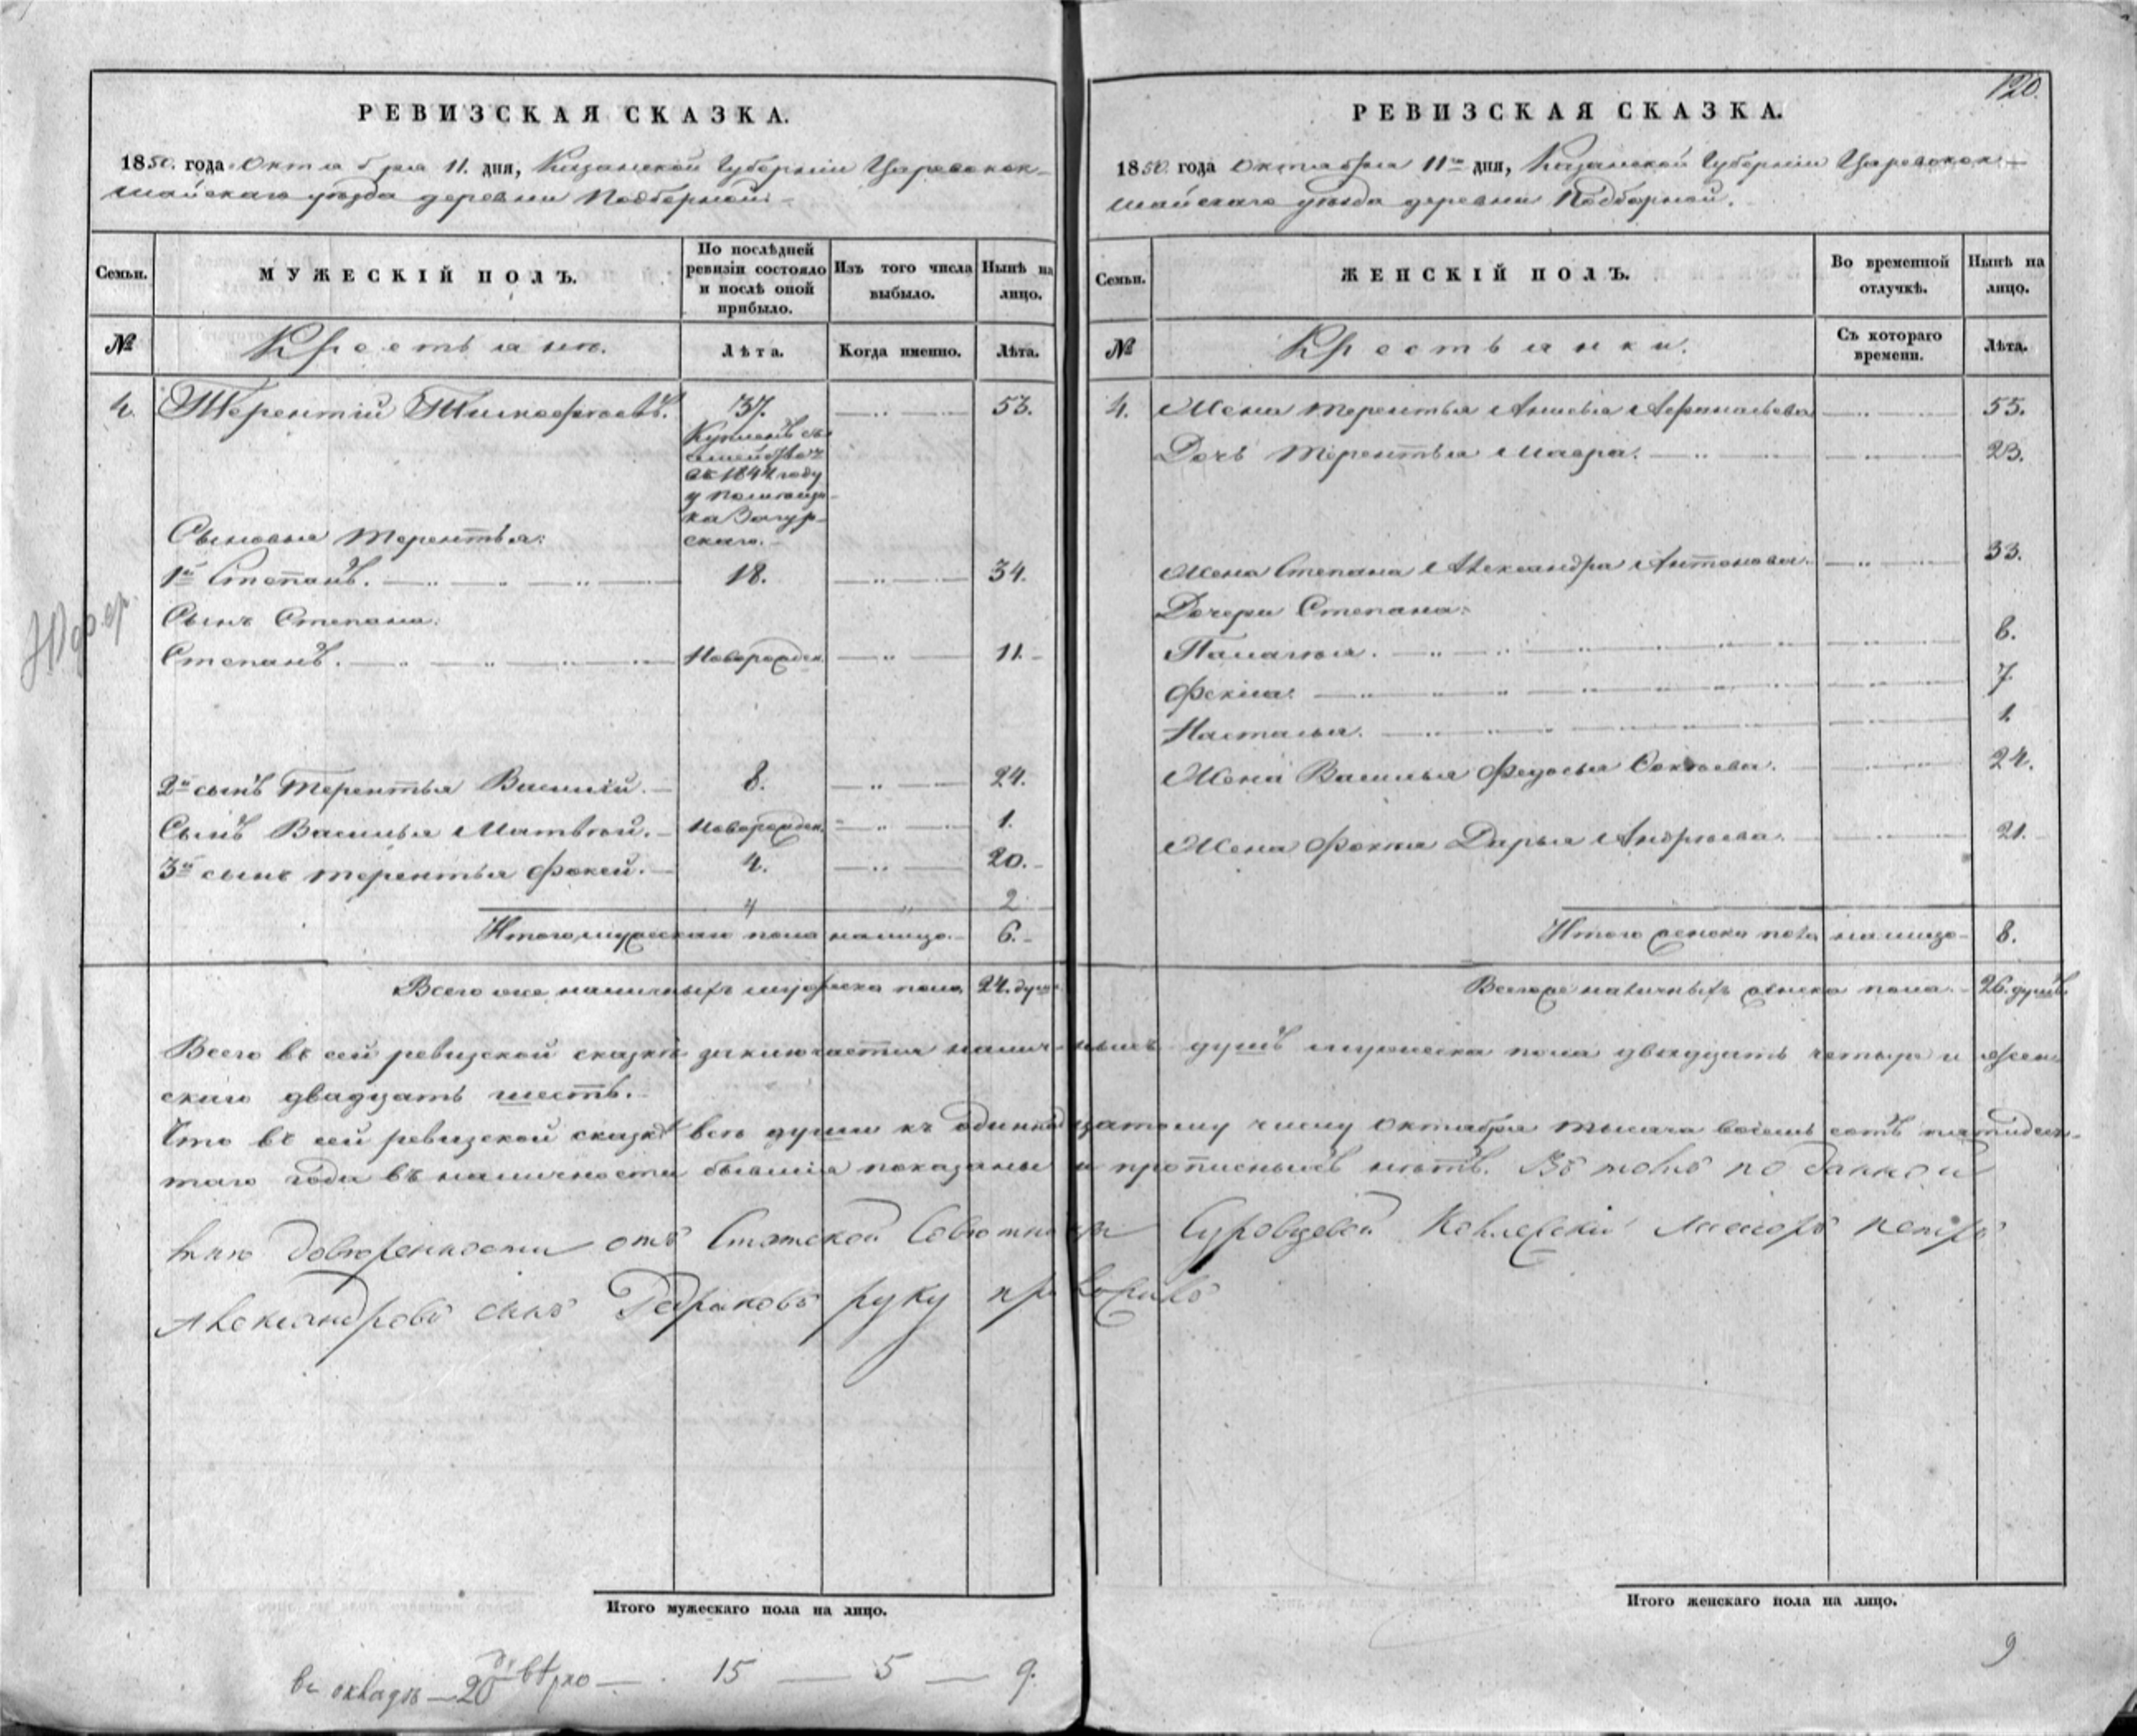 РЕВИЗСКАЯ СКАЗКА.
1850. года Октября 11. дня, Казанской Губерніи Царевокок-
шайскаго уѣзда деревни Подборной.
Семьи.
МУЖЕСКІЙ ПОЛЪ.
По послѣдней ревизіи состояло и послѣ оной прибыло.
Изъ того числа выбыло.
Нынѣ на лицо.
№
Крестьяне.
Лѣта.
Когда именно.
Лѣта.
4. Терентій Тимофѣевъ. 37. 53.
Купленъ съ
семействомъ
въ 1844 году
у помѣщи-
ка Загур-
скаго.
Сыновья Терентья:
1й Степанъ. 18. 34.
Сынъ Степана:
Степанъ. Новорожден. 11.
2й сынъ Терентья Василій. 8. 24.
Сынъ Василья Матвѣй. Новорожден. 1.
3й сынъ Терентья Фокей. 4. 20.
4 " 2
Итого мужескаго пола на лицо. 6.
Всего же наличныхъ мужеска пола 24. душ
РЕВИЗСКАЯ СКАЗКА.
120.
1850. года Октября 11го дня, Казанской Губерніи Царевокок-
шайскаго уѣзда деревни Подборной.
Семьи.
ЖЕНСКІЙ ПОЛЪ.
Во временной отлучкѣ.
Нынѣ на лицо.
№
Крестьянки.
Съ котораго времени.
Лѣта.
4. Жена Терентья Анисья Афанасьева 55.
Дочь Терентья Мавра. 23.
Жена Степана Александра Антонова. 33.
Дочери Степана:
Палагея. 6.
Фекла. 7.
Настасья. 1.
Жена Василья Федосья 24.
Жена Фокея Дарья Андрѣева. 21.
Итого женска пола на лицо 8.
Всего же наличныхъ женска пола. 26. душъ.
Всего въ сей ревизской сказкѣ заключается налич-ныхъ душъ мужеска пола двадцать четыре и жен-
скаго двадцать шесть.
Что въ сей ревизской сказкѣ всѣ души къ одиннадцатому числу Октября тысяча восемь сотъ пятидеся-
таго года въ наличности бывшія показаны и прописныхъ нѣтъ. Въ томъ по данной
мнѣ довѣренности отъ Статской Совѣтницы Суровцевой Коллежскій Петръ
Александровъ сынъ руку приложилъ
Итого мужескаго пола на лицо.
Итого женскаго пола на лицо.
въ окладѣ — 20 — 15 — 5 — 9.
9